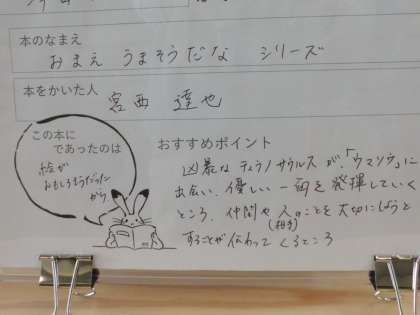 本のなまえ
おまえ うまそうだな シリーズ
本をかいた人
宮西 達也
この本に
であったのは
絵が
おもしろそうだった
から
おすすめポイント
凶暴なティラノサウルスが、「ウマソウ」に
出会い、優しい一面を発揮していく
ところ。仲間や人のことを大切にしようと
(相手)
することが伝わってくるところ